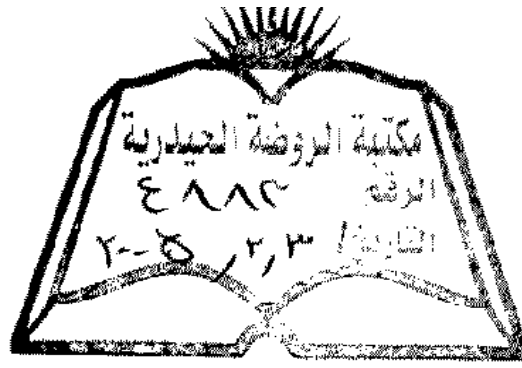 مكتبة الروضة الحيدرية
الرقم ٤٨٨٢
التاريخ / ٣ , ٢ , ٢٠٠٥